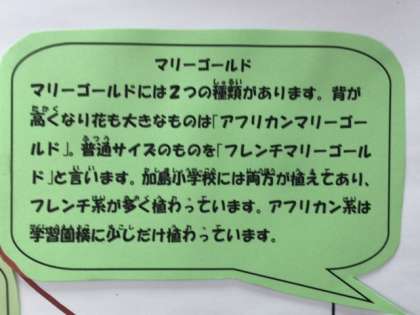 マリーゴールド
マリーゴールドには2つの種類があります。背が
高くなり花も大きなものは「アフリカンマリーゴー
ルド」。普通サイズのものを「フレンチマリーゴール
ド」と言います。加島小学校には両方が植えてあり、
フレンチ系が多く植わっています。アフリカン系は
学習園横に少しだけ植わっています。